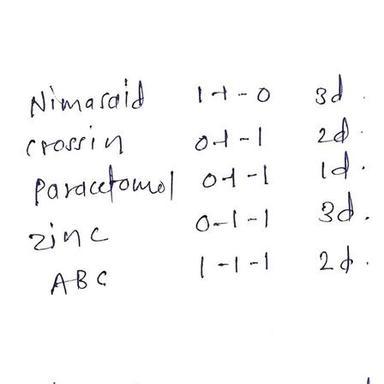 Nimasaid 1-1-0 3d.
crossin 0-1-1 2d.
paracetomol 0-1-1 1d.
zinc 0-1-1 3d.
ABC 1-1-1 2d.